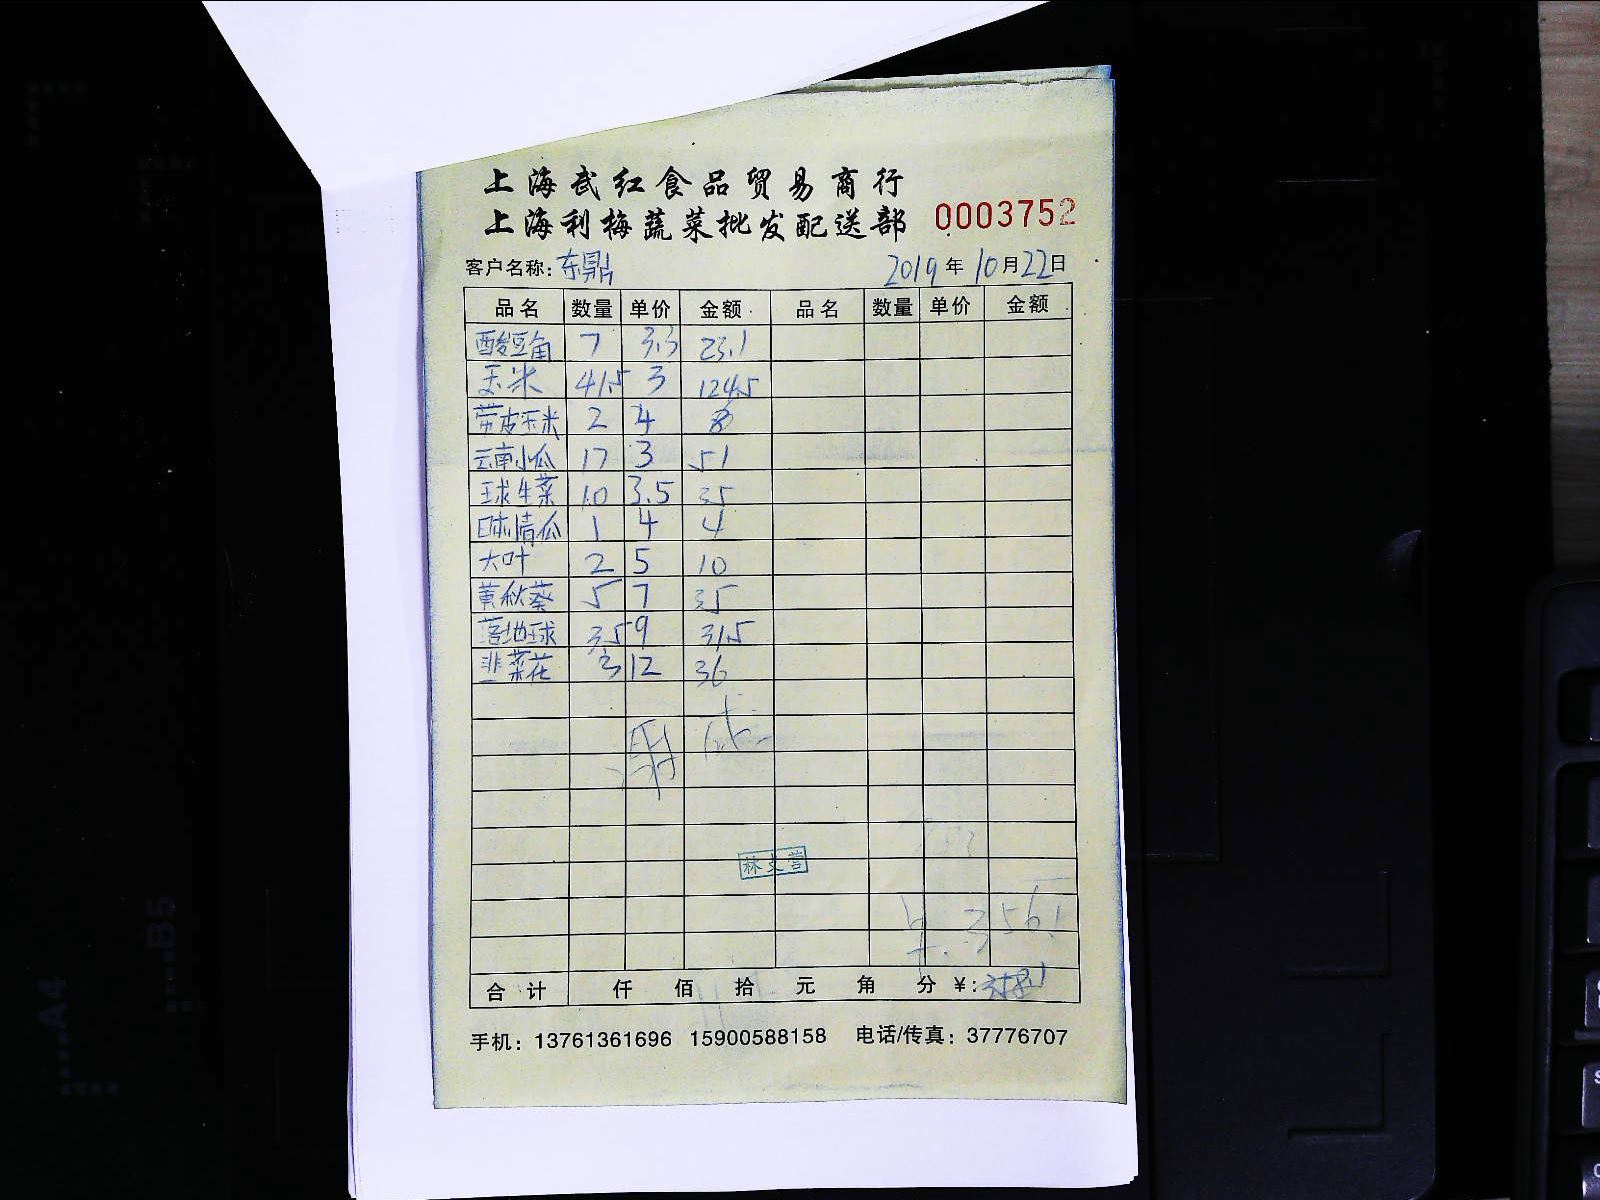 上海武红食品贸易商行
上海利梅蔬菜批发配送部 0003752
客户名称: 东鼎 2019年10月22日
品名 数量 单价 金额 品名 数量 单价 金额
酸豆角 7 3.3 23.1
玉米 41.5 3 124.5
带皮玉米 2 4 8
云南小瓜 17 3 51
球生菜 10 3.5 35
日本青瓜 1 4 4
大叶 2 5 10
黄秋葵 5 7 35
落地球 3.5 9 31.5
韭菜花 3 12 36
林文营
3561
合计 仟 佰 拾 元 角 分 ¥:
手机: 13761361696 15900588158 电话/传真: 37776707
A4
B5